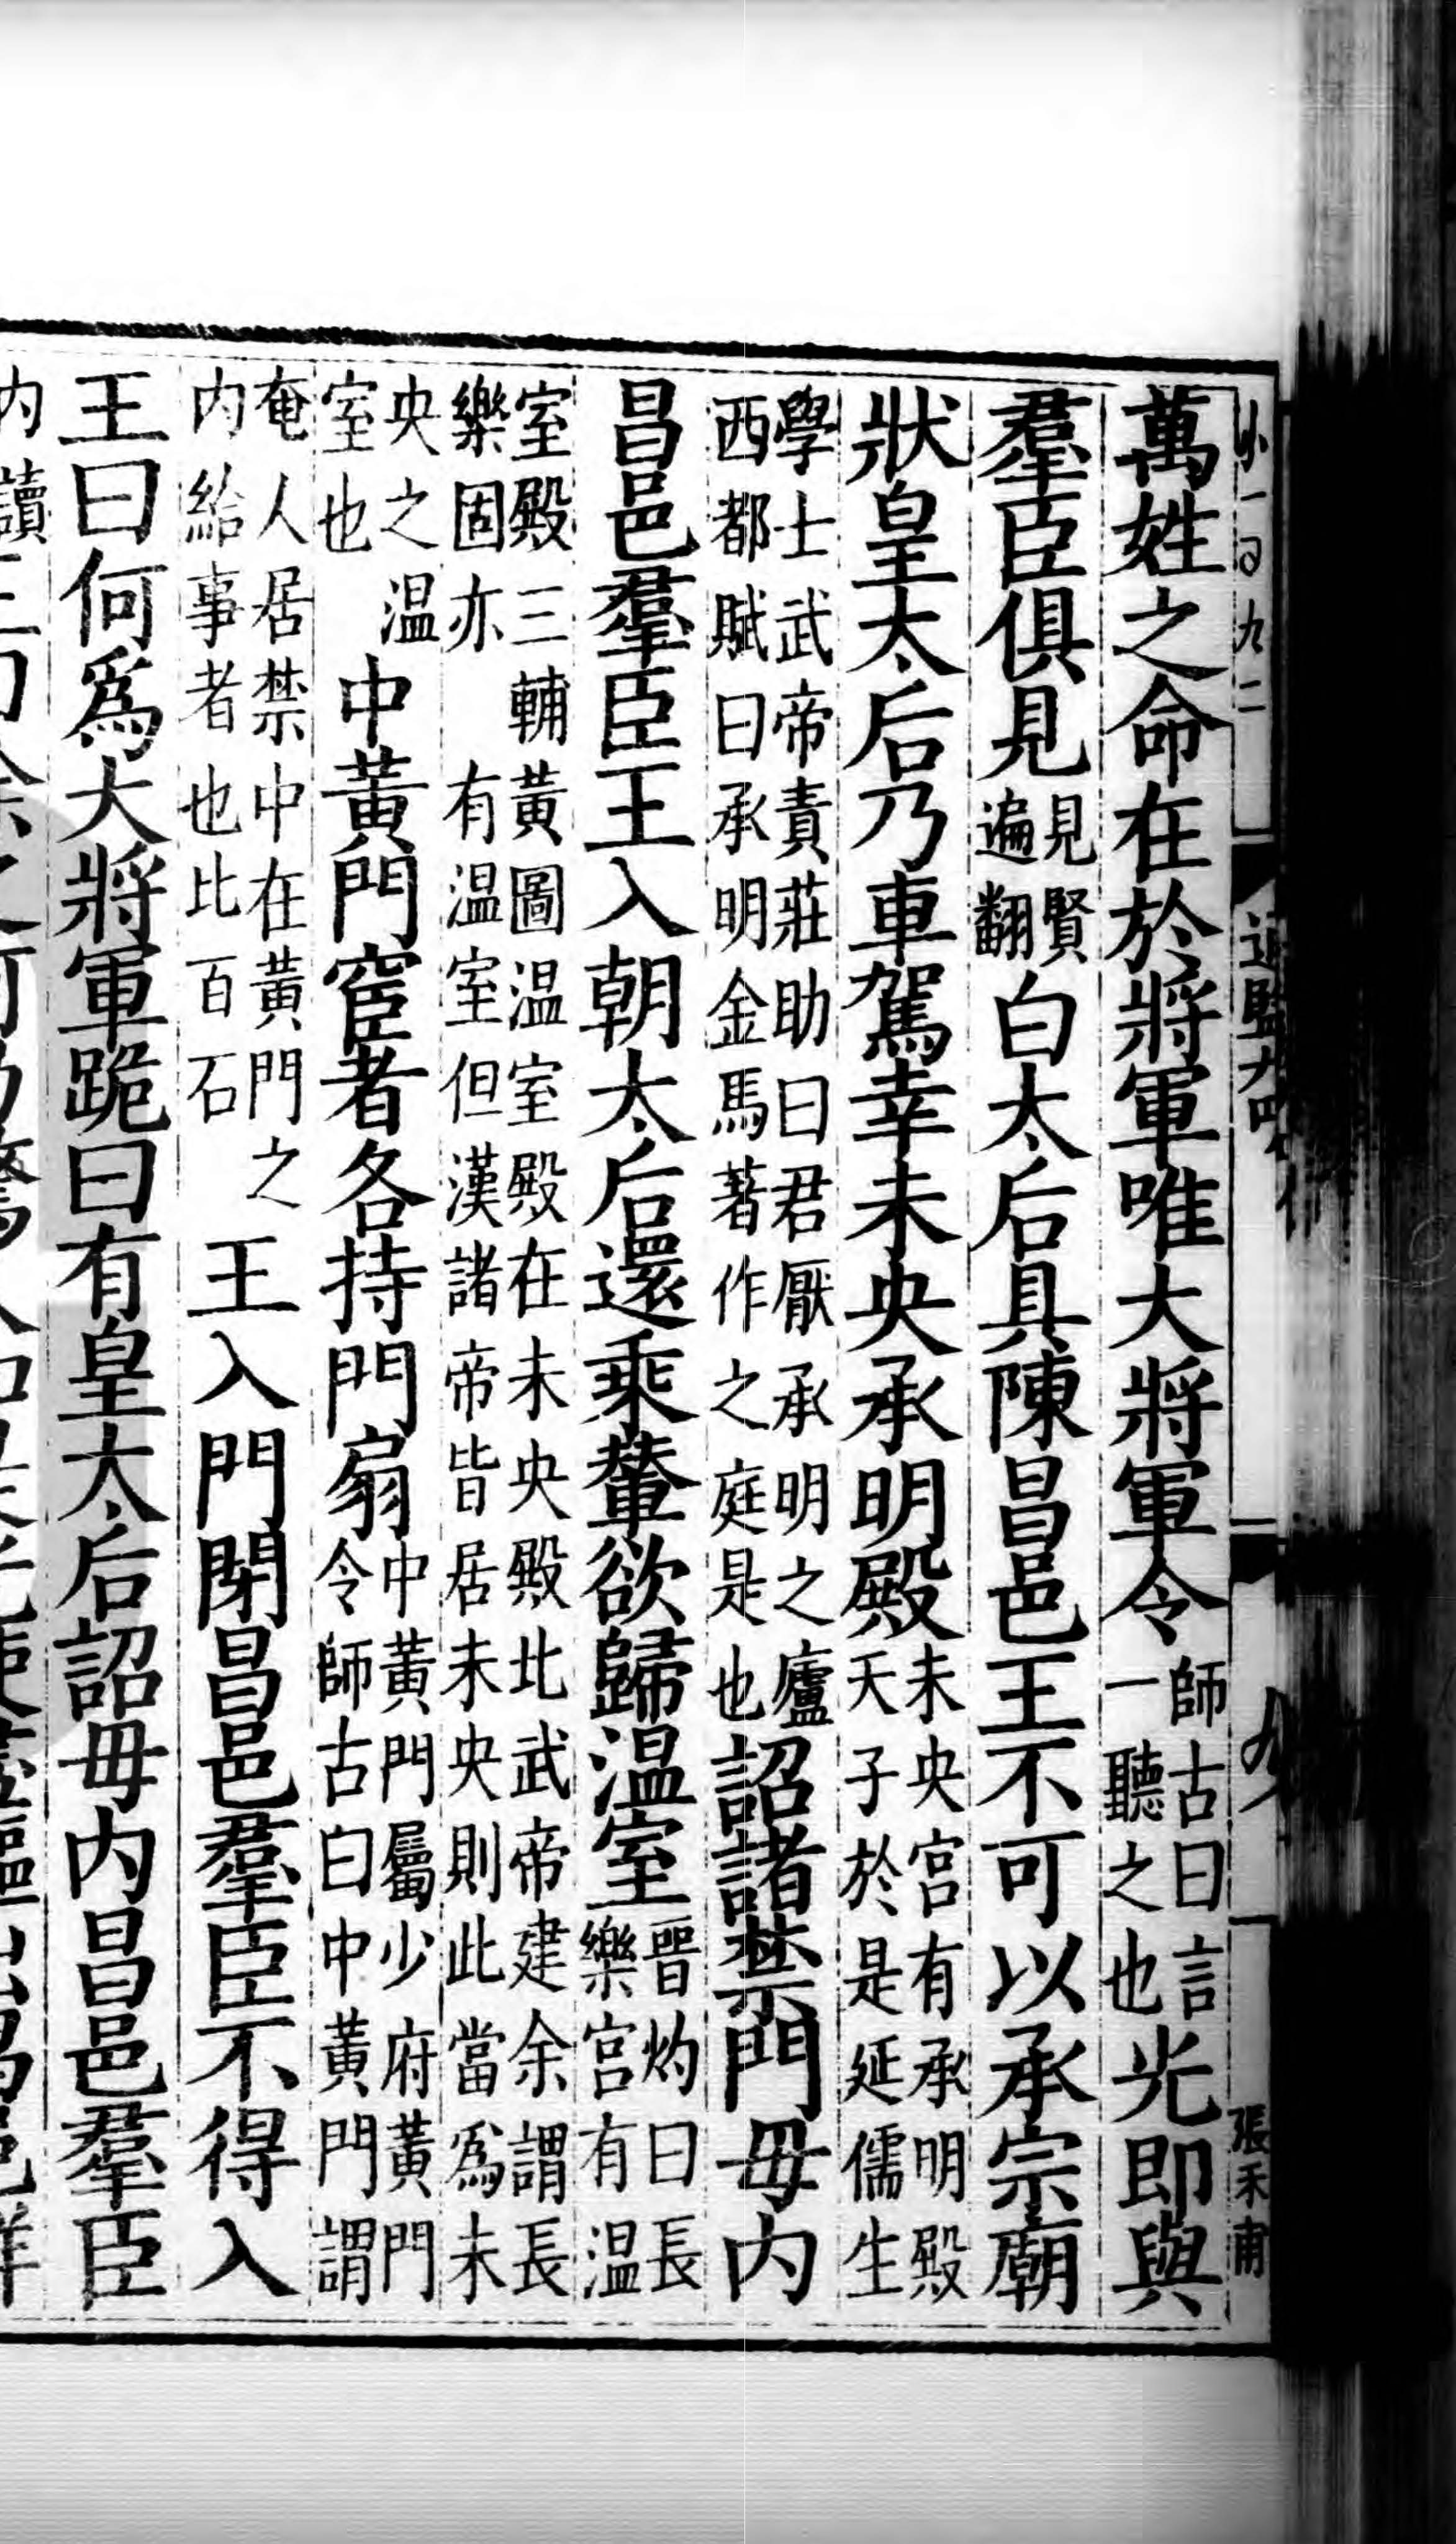 小一百九二
九
張禾甫
萬姓之命在於將軍唯大將軍令師古曰言一聽之也光即與
羣臣俱見見賢遍翻白太后具陳昌邑王不可以承宗廟
狀皇太后乃車駕幸未央承明殿未央宮有承明殿天子於是延儒生
學士武帝責莊助曰君厭承明之廬西都賦曰承明金馬著作之庭是也詔諸禁門毋内
昌邑羣臣王入朝太后還乘輦欲歸温室晉灼曰長樂宮有温
室殿三輔黃圖温室殿在未央殿北武帝建余謂長樂固亦有温室但漢諸帝皆居未央則此當爲未
央之温室也中黃門宦者各持門扇中黃門屬少府黃門令師古曰中黃門謂
奄人居禁中在黃門之内給事者也比百石王入門閉昌邑羣臣不得入
王曰何爲大將軍跪曰有皇太后詔毋内昌邑羣臣